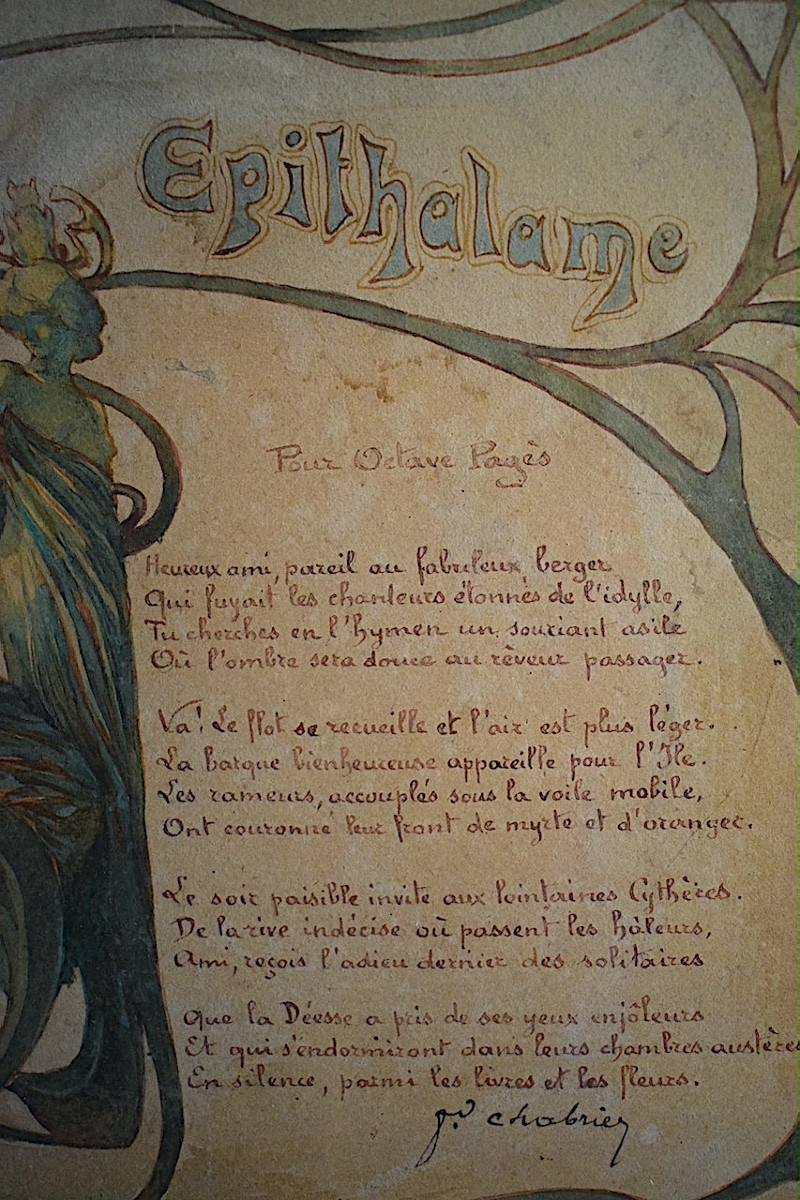 Epithalame
Pour Octave Pagès
Heureux ami, pareil au fabuleux berger
Qui fuyait les chanteurs étonnés de l'idylle,
Tu cherches en l'hymen un souriant asile
Où l'ombre sera douce au rêveur passager.
Va! Le flot se recueille et l'air est plus léger.
La barque bienheureuse appareille pour l'Ile.
Les rameurs, accouplés sous la voile mobile,
Ont couronné leur front de myrte et d'oranger.
Le soir paisible invite aux lointaines Cythères.
De la rive indécise où passent les hâleurs,
Ami, reçois l'adieu dernier des solitaires
Que la Déesse a pris de ses yeux enjôleurs
Et qui s'endormiront dans leurs chambres austères
En silence, parmi les livres et les fleurs.